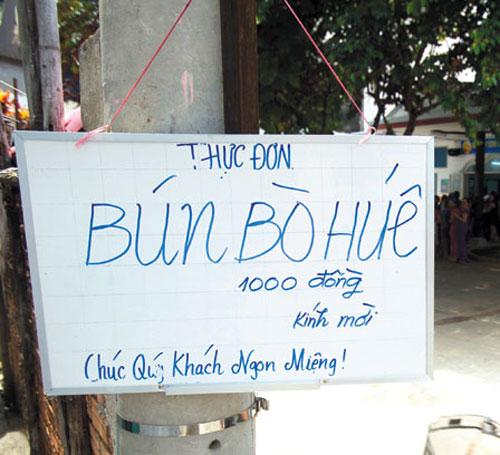 THỰC ĐƠN
BÚN BÒ HUẾ
1000 đồng
kính mời
Chúc Quý Khách Ngon Miệng!